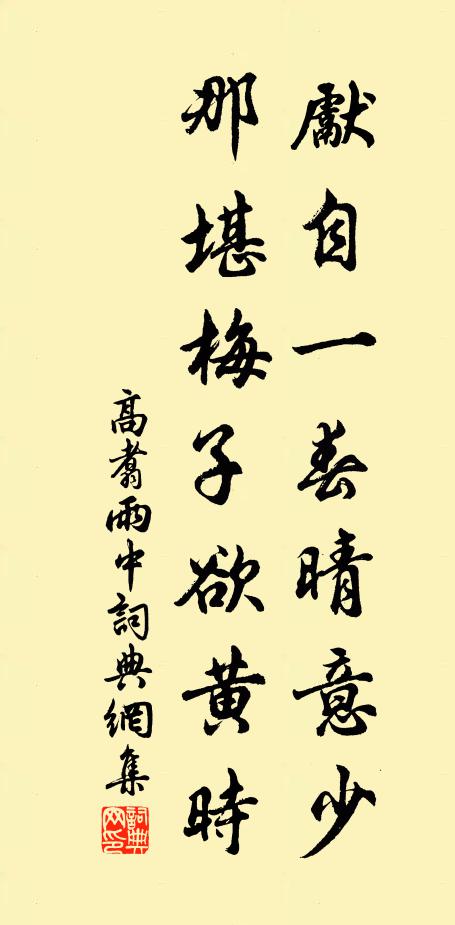 獻自一春晴意少
那堪梅子欲黃時
高翥雨中詞典網集
詞典网印